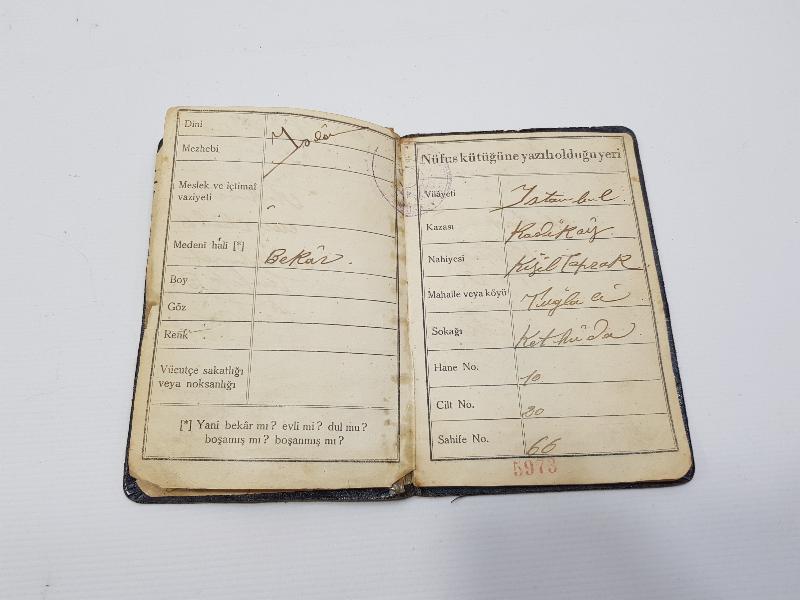 Dini
Mezhebi
Meslek ve içtimaî
vaziyeti
Medenî hâli [*] Bekâr.
Boy
Göz
Renk
Vücutçe sakatlığı
veya noksanlığı
[*] Yani bekâr mı? evli mi? dul mu?
boşamış mı? boşanmış mı?
Nüfus kütüğüne yazılı olduğu yeri
Vilâyeti Istanbul.
Kazası Kadıköy
Nahiyesi Kızıl Toprak
Mahalle veya köyü Tuğlacı
Sokağı Kethüda
Hane No. 10
Cilt No. 20
Sahife No. 66
5973